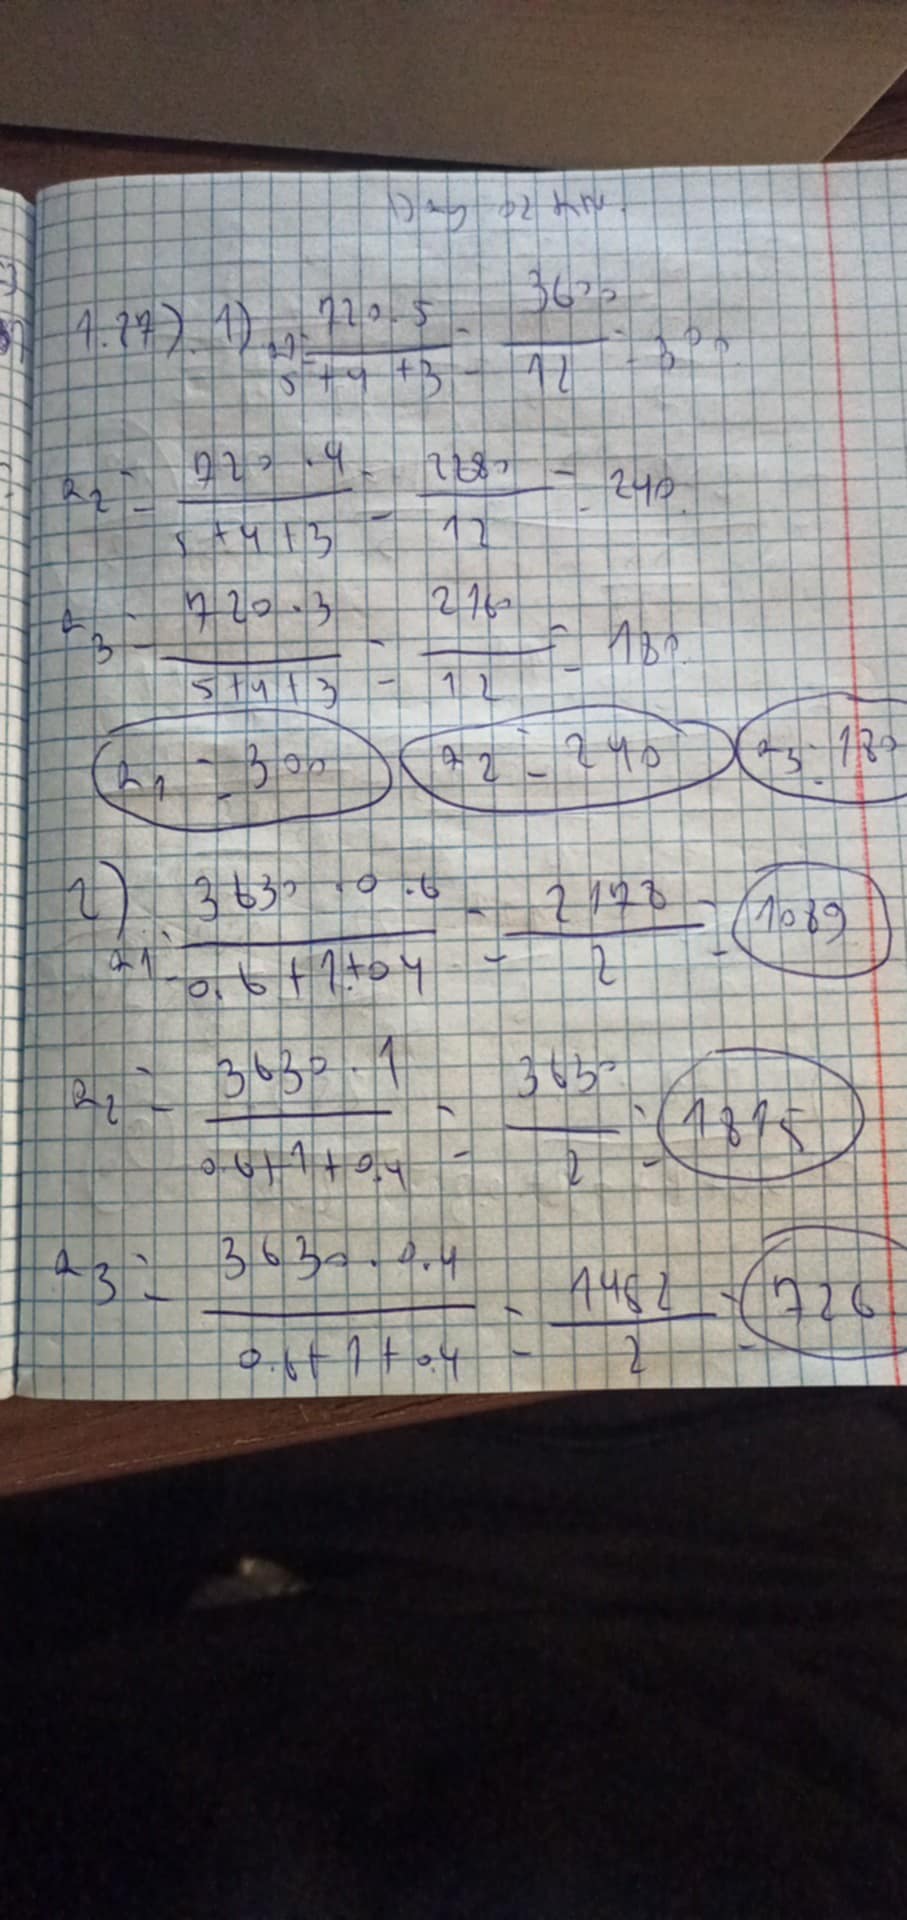 1.27). 1) a1 = 720.5 / 5+4+3 = 3600 / 12 = 300
a2 = 720.4 / 5+4+3 = 2280 / 12 = 240
a3 = 720.3 / 5+4+3 = 2160 / 12 = 180
a1 = 300 a2 = 240 a3 = 180
2) a1 = 3630.0.6 / 0.6+1+0.4 = 2178 / 2 = 1089
a2 = 3630.1 / 0.6+1+0.4 = 3630 / 2 = 1815
a3 = 3630.0.4 / 0.6+1+0.4 = 1462 / 2 = 726